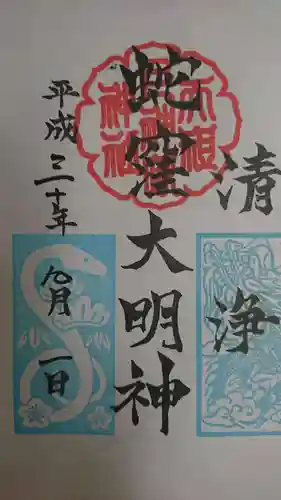 清浄
蛇窪大明神
平成三十年九月一日